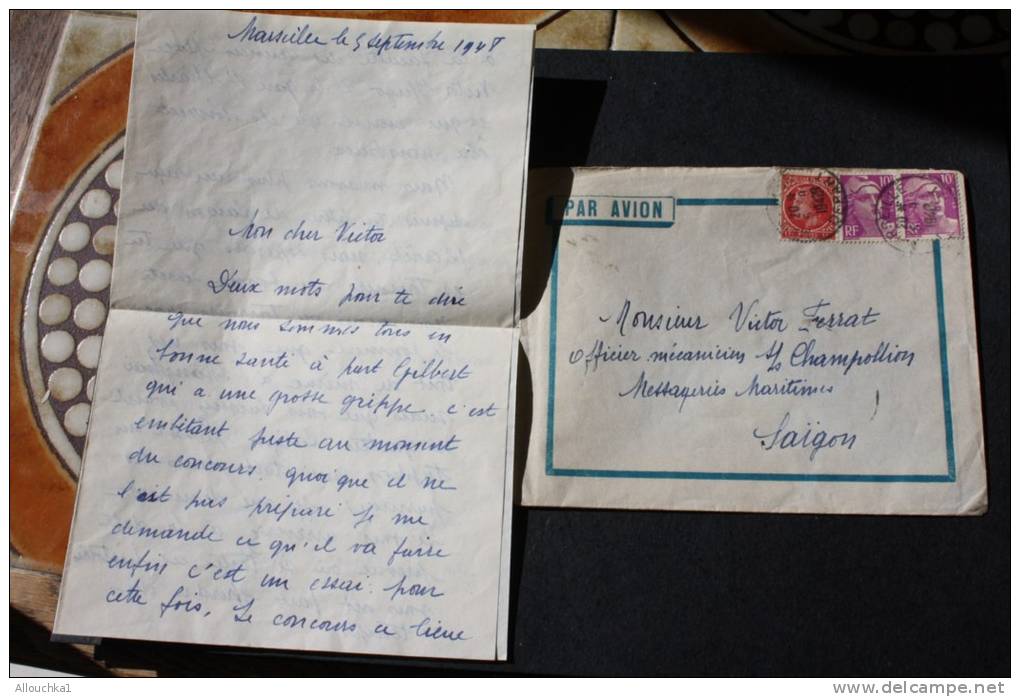 Marseille le 5 septembre 1948
Mon cher Victor
Deux mots pour te dire
que nous sommes tous en
bonne santé à part Gilbert
qui a une grosse grippe c'est
embêtant juste au moment
du concours. quoi que il ne
l'est pas préparé je me
demande ce qu'il va faire
enfin c'est un essai pour
cette fois. Le concours a lieue
PAR AVION
10F
RF
10F
Monsieur Victor Ferrat
Officier mécanicien S/s Champollion
Messageries Maritimes
Saïgon
Allouchka1
© delcampe.net